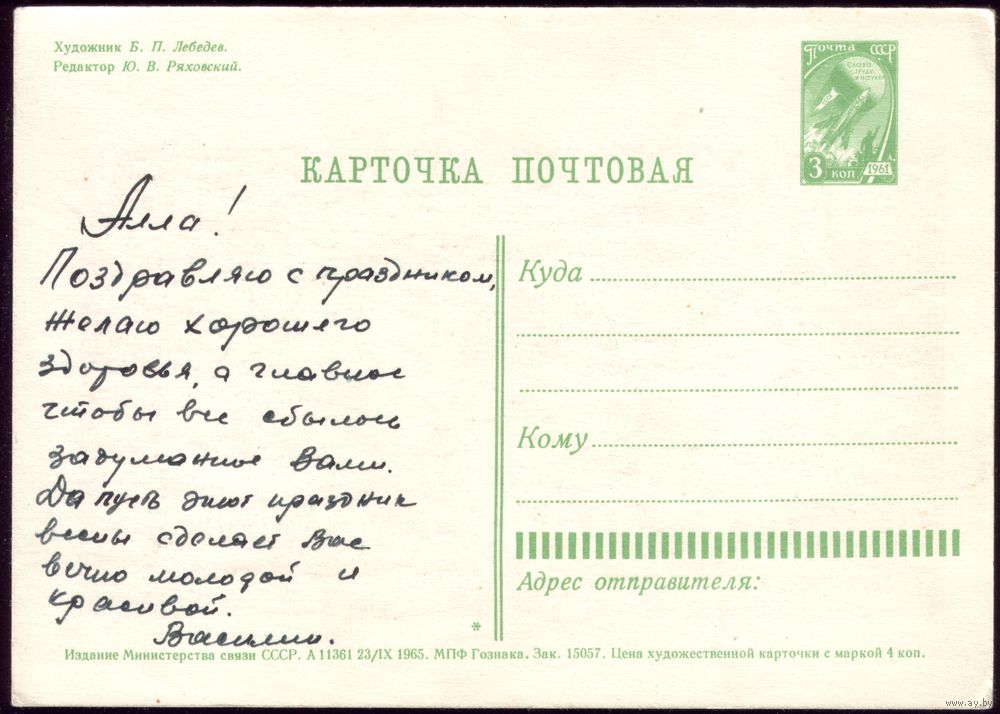 Художник Б. П. Лебедев.
Редактор Ю. В. Ряховский.
Почта СССР
СЛАВА
ТРУДУ
И НАУКЕ
3 КОП 1961
КАРТОЧКА ПОЧТОВАЯ
Алла!
Поздравляю с праздником,
желаю хорошего
здоровья, а главное
чтобы все сбылось
задуманное Вами.
Да пусть этот праздник
весны сделает Вас
вечно молодой и
красивой.
Василий.
Куда
Кому
Адрес отправителя:
*
Издание Министерства связи СССР. А 11361 23/IX 1965. МПФ Гознака. Зак. 15057. Цена художественной карточки с маркой 4 коп.
www.ay.by